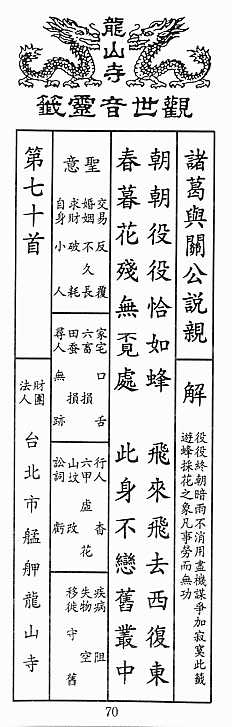 龍山寺
觀世音靈籤
諸葛與關公説親
解
役役終朝暗雨不消用盡機謀爭加寂寞此籤
遊蜂採花之象凡事勞而無功
朝朝役役恰如蜂 飛來飛去西復東
春暮花殘無覓處 此身不戀舊叢中
聖意
交易 反覆
婚姻 不久長
求財 破耗
自身 小人
家宅 口舌
六畜 損
田蚕 損
尋人 無跡
行人 杳
六甲 虛花
山坟 改
訟詞 虧
疾病 阻
失物 空
移徙 守舊
第七十首
財團
法人
台北市艋舺龍山寺
70